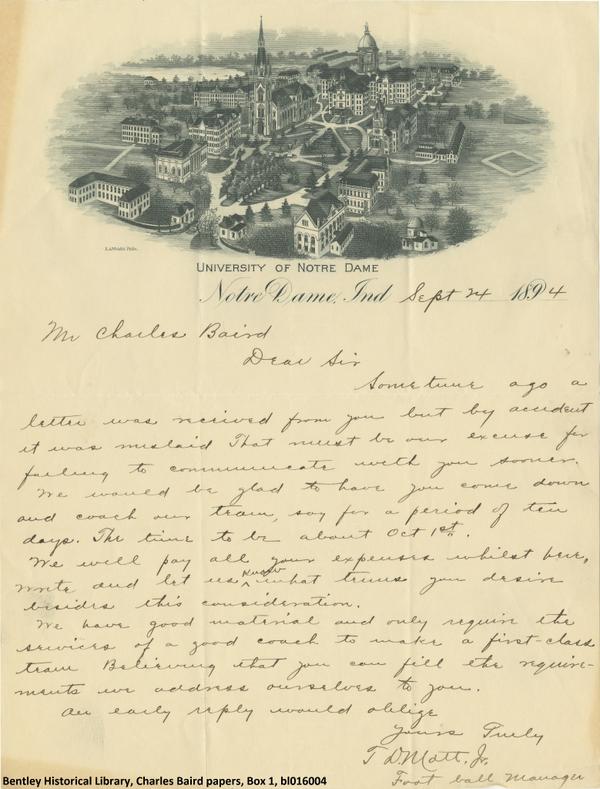 UNIVERSITY OF NOTRE DAME
Notre Dame, Ind Sept 24 1894
Mr Charles Baird
Dear Sir
Sometime ago a
letter was received from you but by accident
it was mislaid That must be our excuse for
failing to communicate with you sooner.
We would be glad to have you come down
and coach our team, say for a period of ten
days. The time to be about Oct 1st.
We will pay all your expenses whilst here,
write and let us know what terms you desire
besides this consideration.
We have good material and only require the
services of a good coach to make a first-class
team Believing that you can fill the require-
ments we address ourselves to you.
An early reply would oblige
Yours Truly
T D Mott, Jr.
Foot ball Manager
Bentley Historical Library, Charles Baird papers, Box 1, bl016004